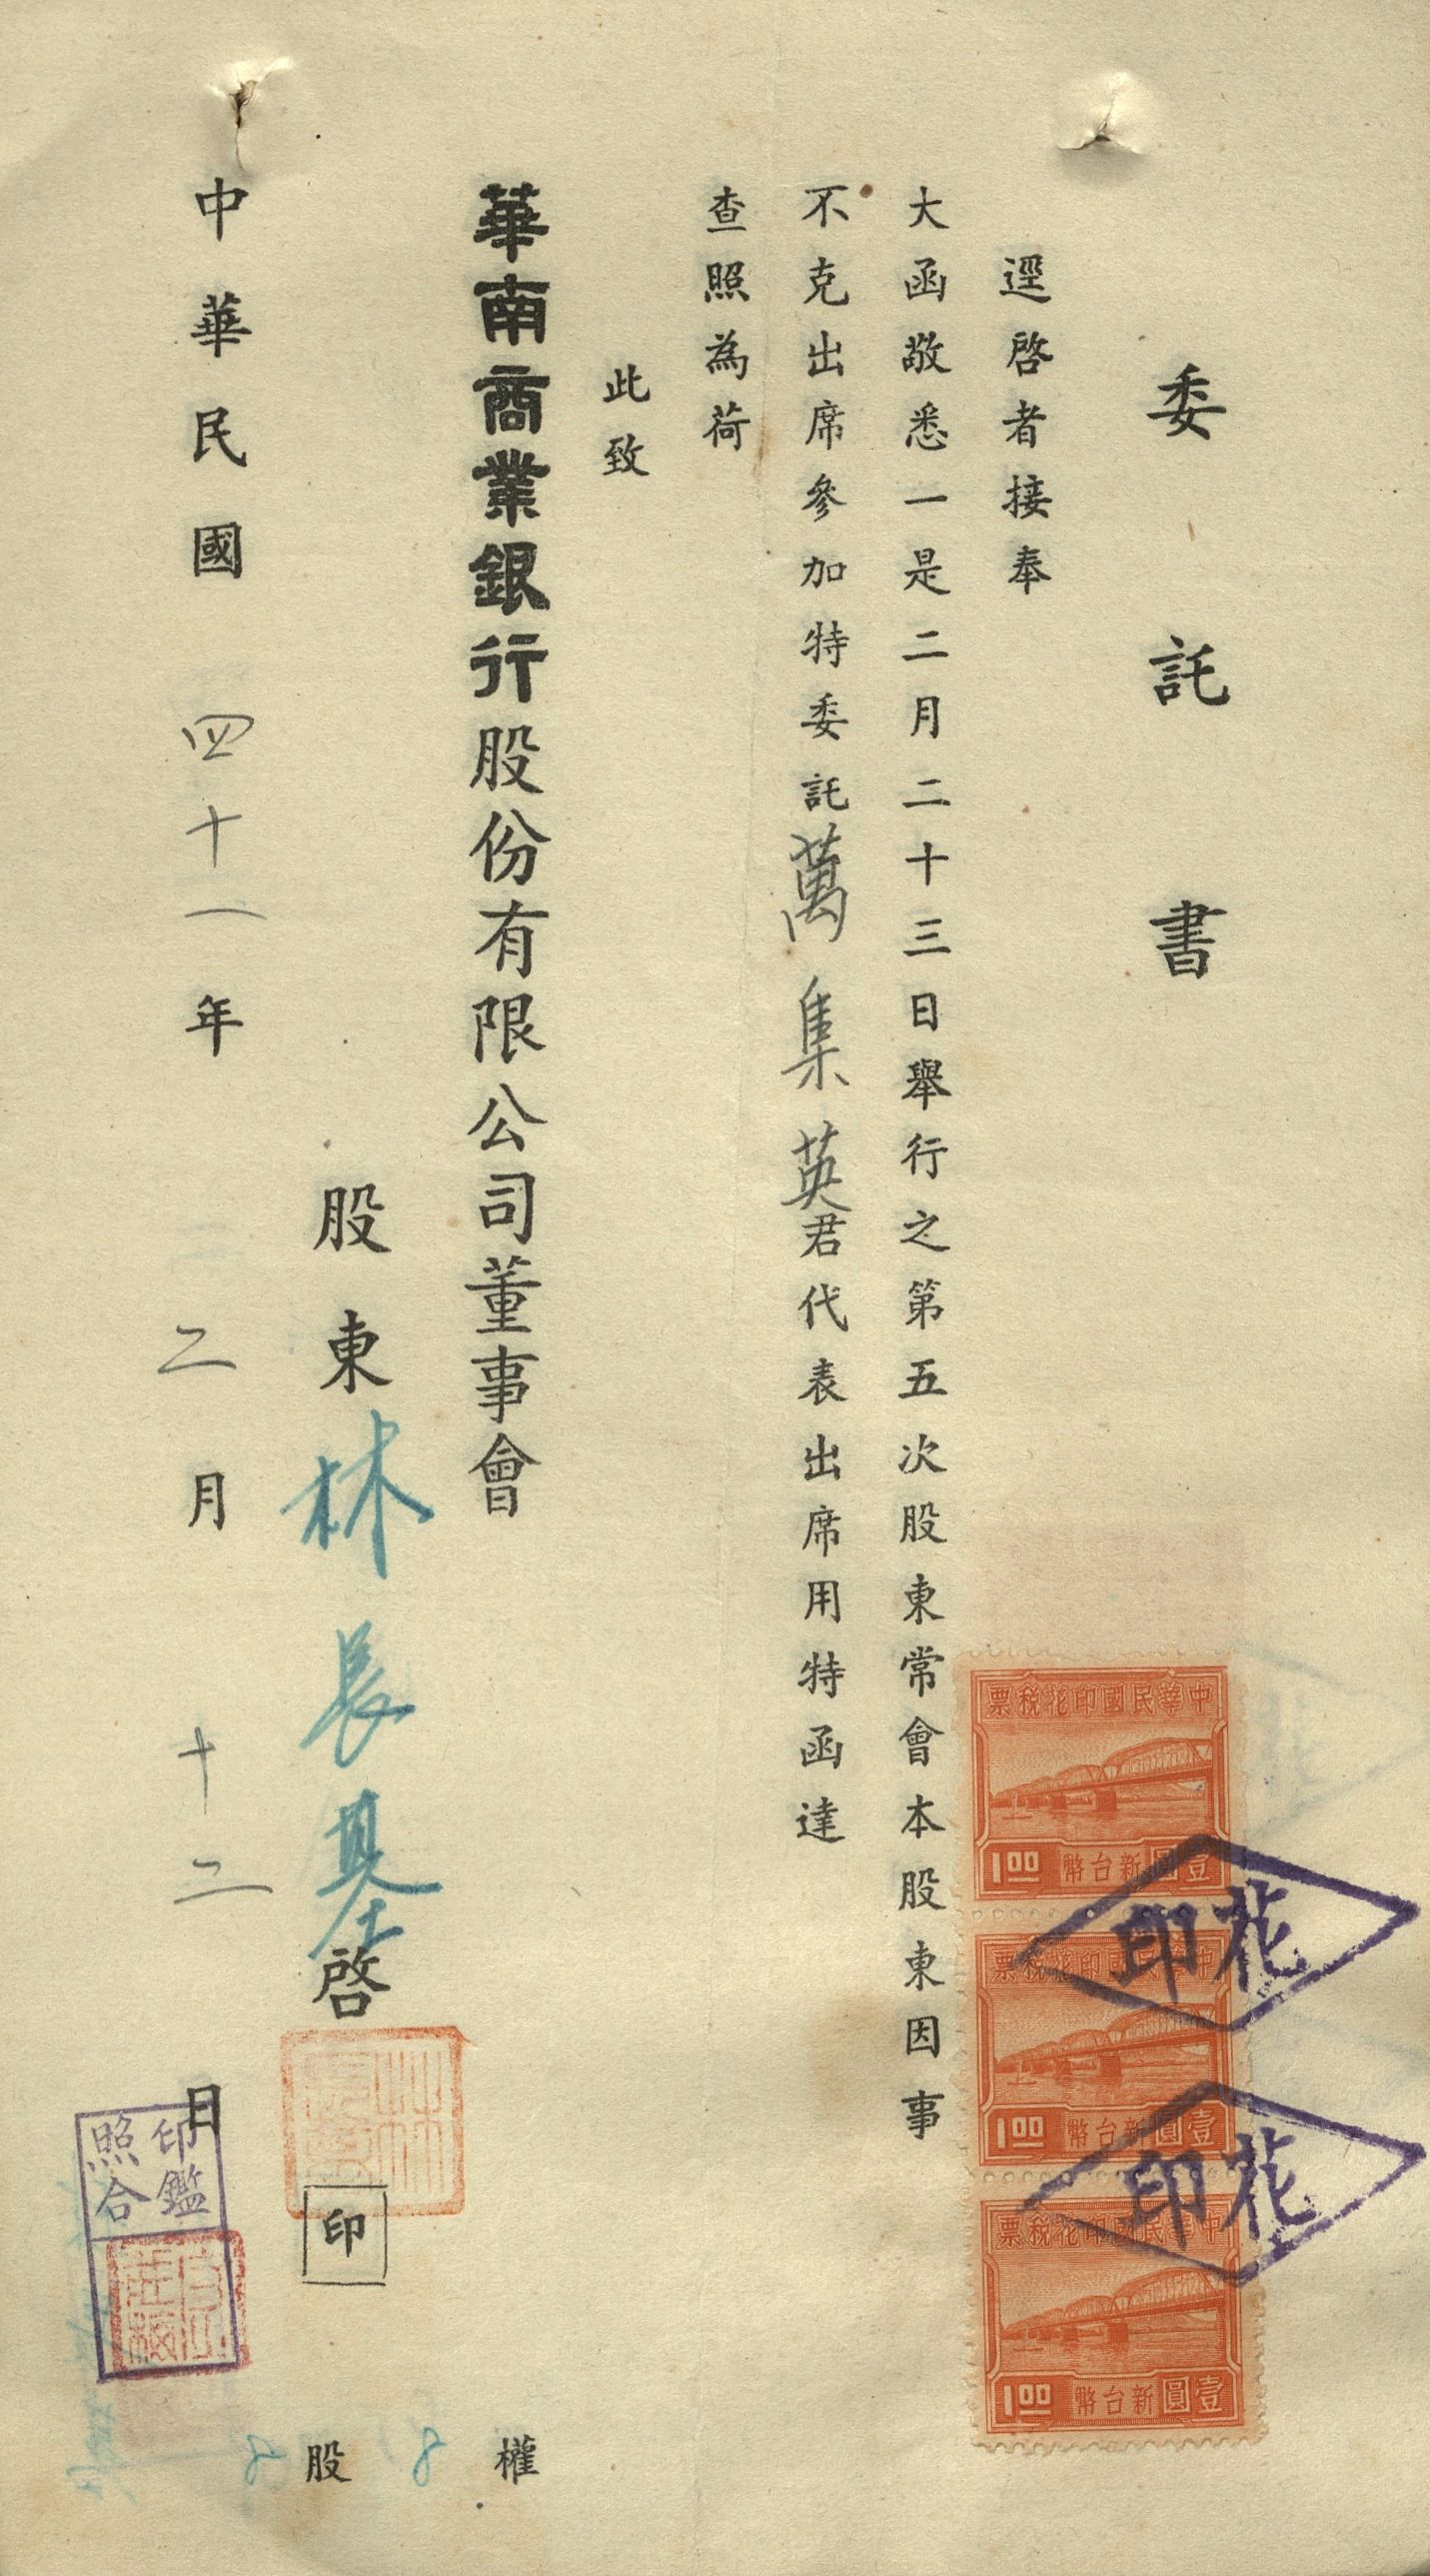 委託書
逕啓者接奉
大函敬悉一是二月二十三日舉行之第五次股東常會本股東因事
不克出席參加特委託萬集英君代表出席用特函達
查照為荷
此致
華南商業銀行股份有限公司董事會
股東林長基啓
印
中華民國四十一年二月十二日
權8股8
印鑑
照合
中華民國印花稅票
壹圓新台幣
1.00
花印
中華民國印花稅票
壹圓新台幣
1.00
花印
中華民國印花稅票
壹圓新台幣
1.00